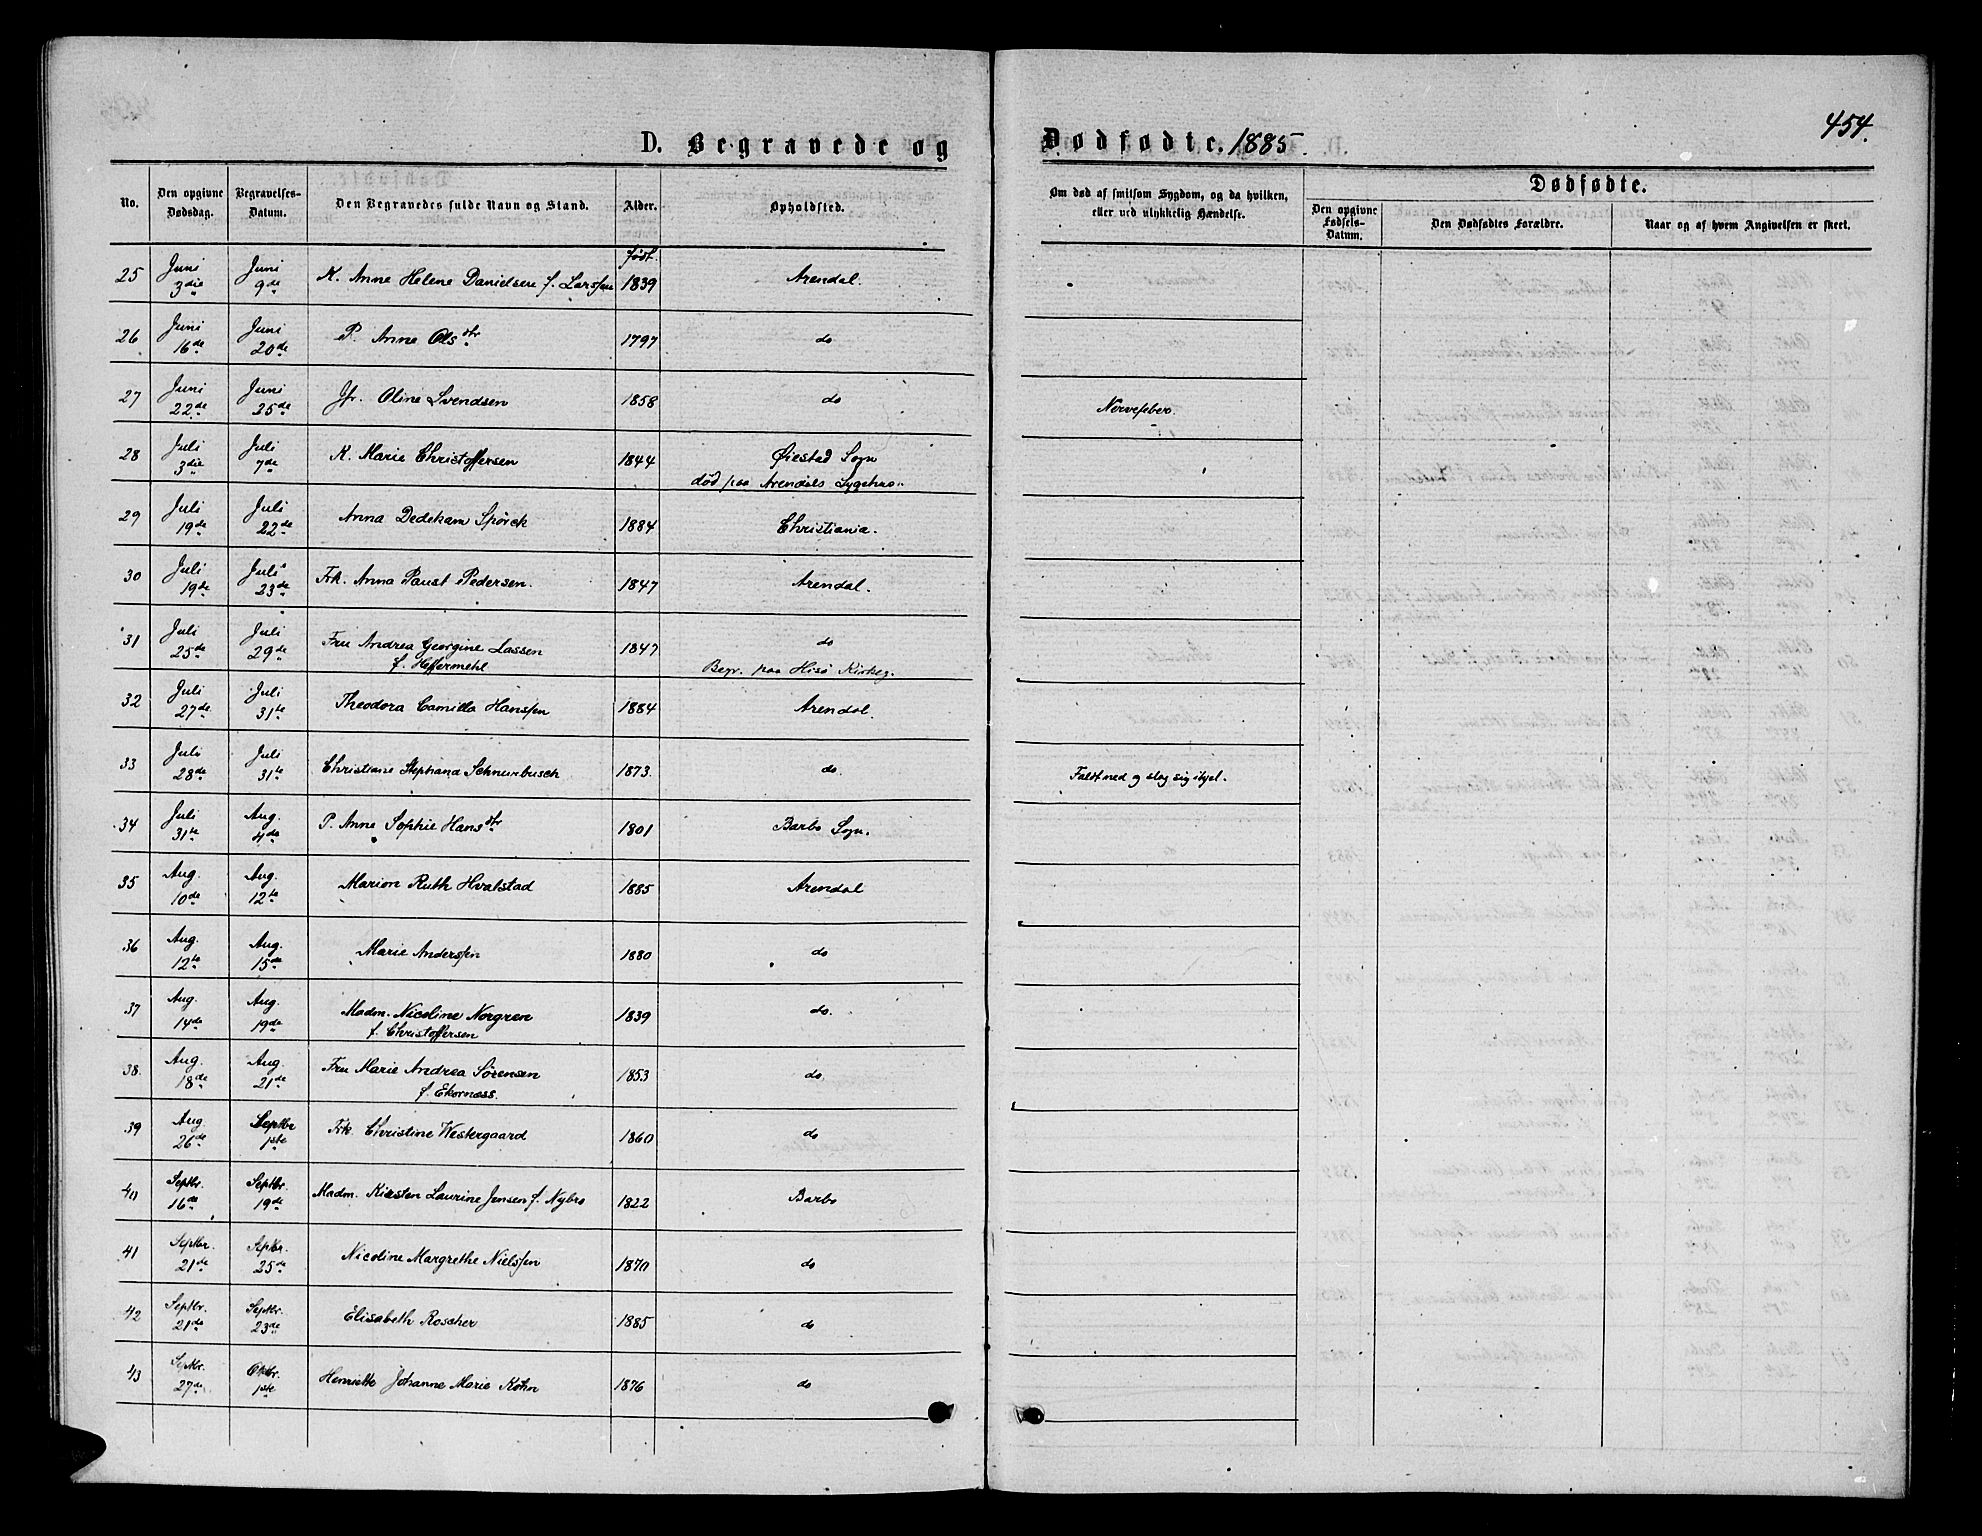 454.
D. Begravede og Dødfødte. 1885
No. | Den opgivne Dødsdag. | Begravelses-Datum. | Den Begravedes fulde Navn og Stand. | Alder. | Opholdsted. | Om død af smitsom Sygdom, og da hvilken, eller ved ulykkelig Hændelse. | Dødfødte. | Den opgivne Fødsels-Datum. | Den Dødfødtes Forældre. | Naar og af hvem Angivelsen er skeet.
født.
25 Juni 3die Juni 9de K. Anne Helene Danielsen f. Larssen 1839 Arendal.
26 Juni 16de Juni 20de P. Anne Olsdtr 1797 do
27 Juni 22de Juni 25de Jfr. Oline Svendsen 1858 do Nervefeber.
28 Juli 3die Juli 7de K. Marie Christoffersen 1844 Øiestad Sogn
død paa Arendals Sygehus.
29 Juli 19de Juli 22de Anna Dedekam Spörck 1884 Christiania.
30 Juli 19de Juli 23de Frk. Anna Paust Pedersen. 1847 Arendal.
31 Juli 25de Juli 29de Fru Andrea Georgine Lassen 1847 do
f. Heffermehl Begr. paa Hisø Kirkeg.
32 Juli 27de Juli 31te Theodora Camilla Hanssen 1884 Arendal.
33 Juli 28de Juli 31te Christiane Stephana Schnurbusch 1873. do. Faldt ned og slog sig ihjel.
34 Juli 31te Aug. 4de P. Anne Sophie Hansdtr 1801 Barbo Sogn.
35 Aug. 10de Aug. 12te Marion Ruth Hvalstad 1885 Arendal
36 Aug. 12te Aug. 15de Marie Anderssen 1880 do
37 Aug. 14de Aug. 19de Madm. Nicoline Norgren 1839 do.
f. Christoffersen
38. Aug. 18de Aug. 21de Fru Marie Andrea Sørensen 1853 do.
f. Ekornæss.
39 Aug. 26de Septbr 1ste Frk. Christine Westergaard 1860 do
40 Septbr. 16de Septbr. 19de Madm. Kirsten Laurine Jensen f. Nybro 1822 Barbo
41 Septbr. 21de Septbr. 25de Nicoline Margrethe Nielssen 1870 do
42 Septbr. 21de Septbr. 23de Elisabeth Roscher 1885 do
43 Septbr. 27de Oktbr. 1ste Henriette Johanne Marie Kohn 1876 do